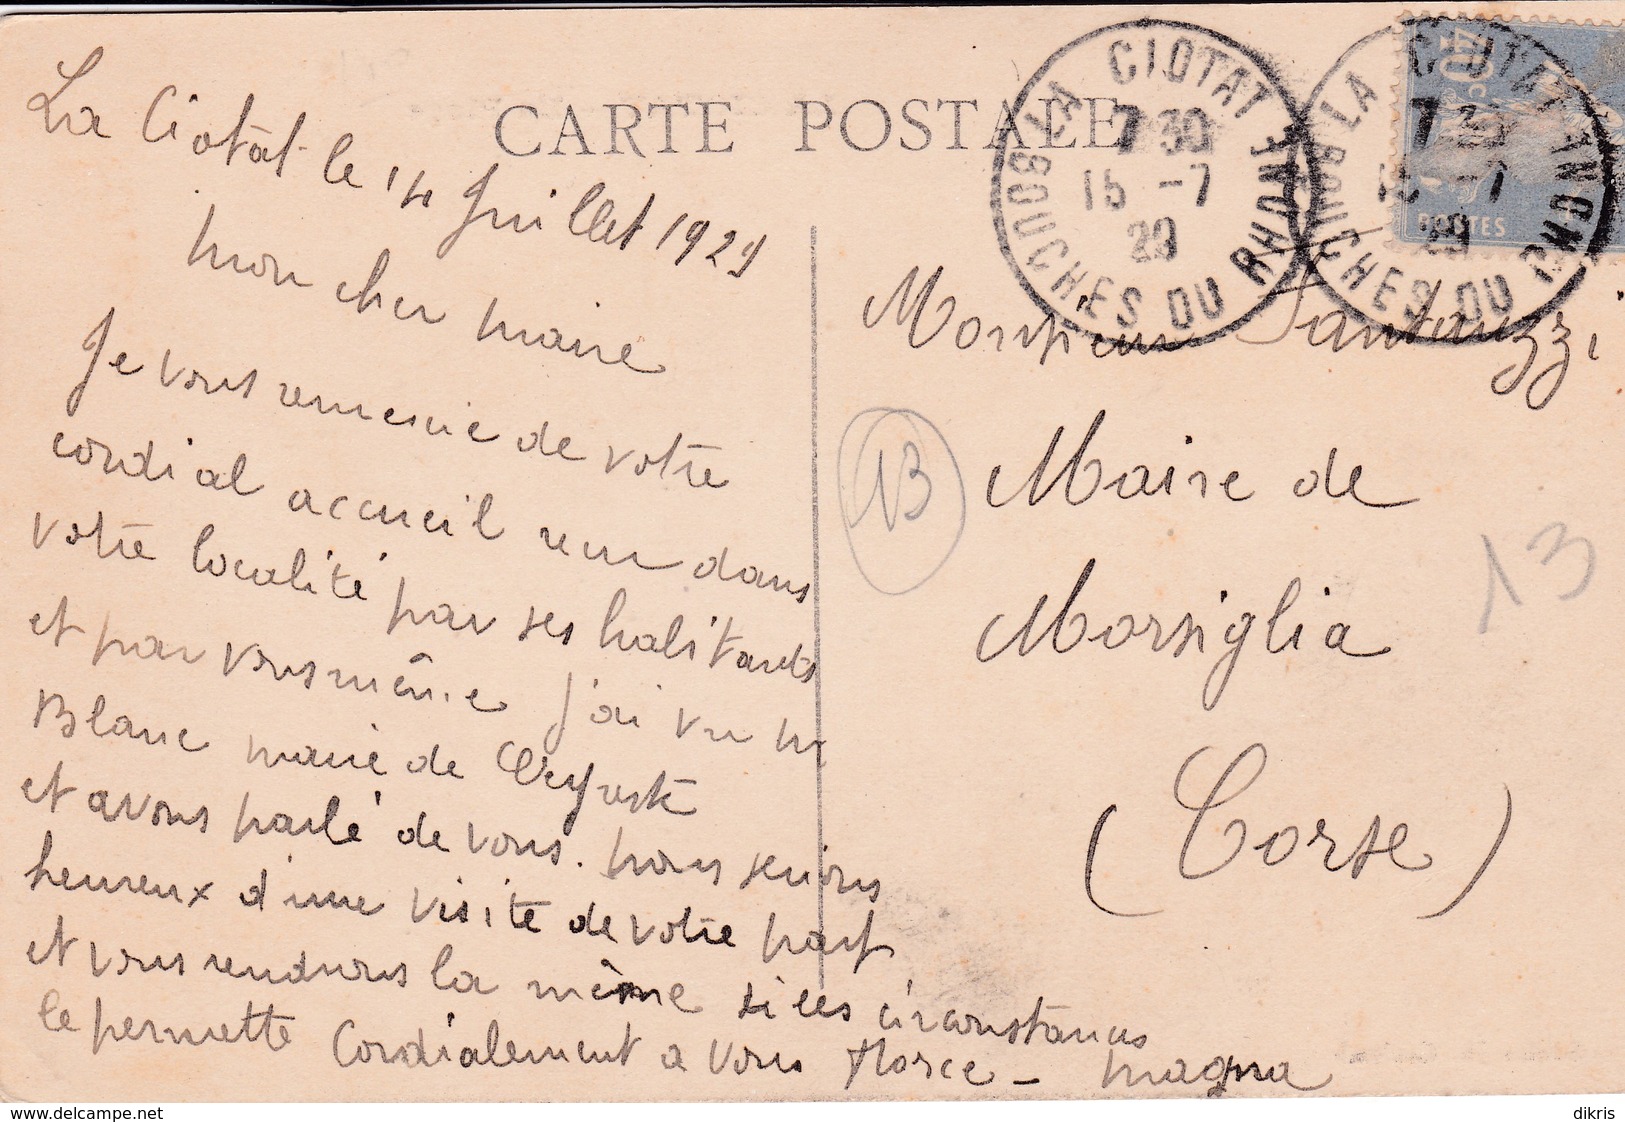 CARTE POSTALE
LA CIOTAT
7 30
15 -7
29
BOUCHES DU RHONE
LA CIOTAT
7 30
15 -7
29
BOUCHES DU RHONE
40c
POSTES
La Ciotat le 14 Juillet 1929
mon cher maire
Je vous remercie de votre
cordial accueil recu dans
votre localité par ses habitants
et par vous même J'ai vu mr
Blanc maire de Ceyreste
et avons parlé de vous. nous serions
heureux d'une visite de votre part
et vous rendrons la même si les circonstances
le permette Cordialement a vous
magna
Monsieur Santauzzi
Maire de
Morsiglia
(Corse)
13
13
www.delcampe.net
dikris